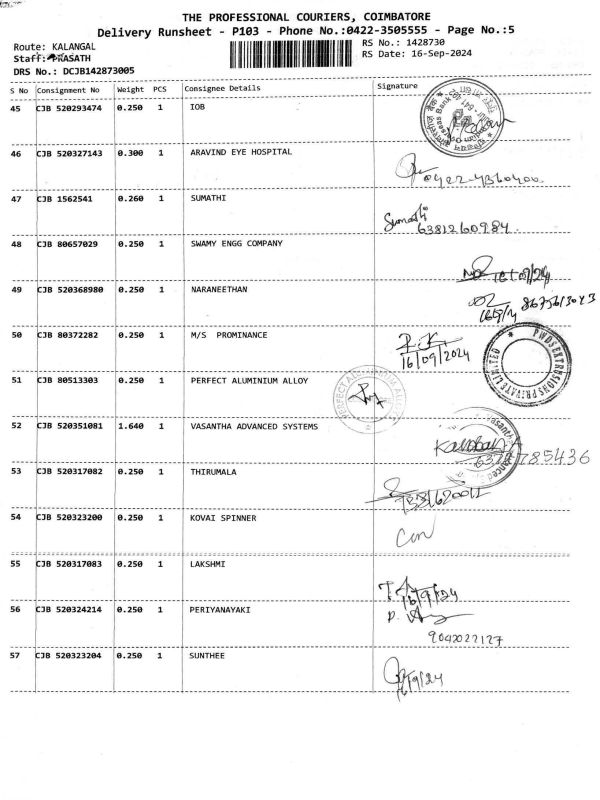 THE PROFESSIONAL COURIERS, COIMBATORE
Delivery Runsheet - P103 - Phone No.:0422-3505555 - Page No.:5
Route: KALANGAL
RS No.: 1428730
Staff:
RS Date: 16-Sep-2024
DRS No.: DCJB142873005
S No Consignment No Weight PCS Consignee Details Signature
45 CJB 520293474 0.250 1 IOB
46 CJB 520327143 0.300 1 ARAVIND EYE HOSPITAL
0422-4360400
47 CJB 1562541 0.260 1 SUMATHI
Sumathi
6381260984
48 CJB 80657029 0.250 1 SWAMY ENGG COMPANY
16/09/24
49 CJB 520368980 0.250 1 NARANEETHAN
50 CJB 80372282 0.250 1 M/S PROMINANCE
16/09/2024
PWDS EXTRUSIONS PRIVATE LIMITED
51 CJB 80513303 0.250 1 PERFECT ALUMINIUM ALLOY
52 CJB 520351081 1.640 1 VASANTHA ADVANCED SYSTEMS
53 CJB 520317082 0.250 1 THIRUMALA
54 CJB 520323200 0.250 1 KOVAI SPINNER
55 CJB 520317083 0.250 1 LAKSHMI
16/9/24
56 CJB 520324214 0.250 1 PERIYANAYAKI
9042022127
57 CJB 520323204 0.250 1 SUNTHEE
16/9/24